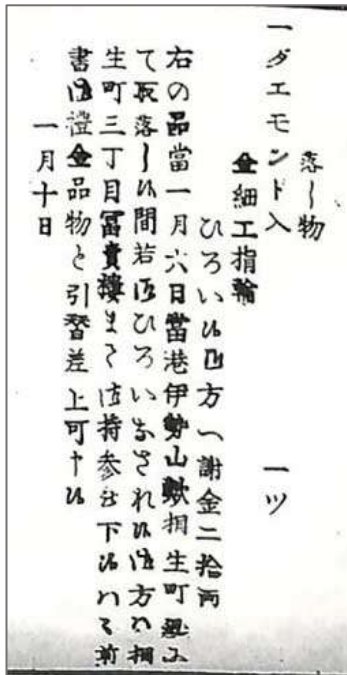 落し物
一ダエモンド入
金細工指輪　一ツ
ひろい候御方へ謝金二拾両
右の品當一月六日當港伊勢山歟相生町邊に
て取落し候間若御ひろいなされ候御方ハ相
生町三丁目冨貴樓まて御持参被下候ハヽ前
書御禮金品物と引替差上可申候
一月十日